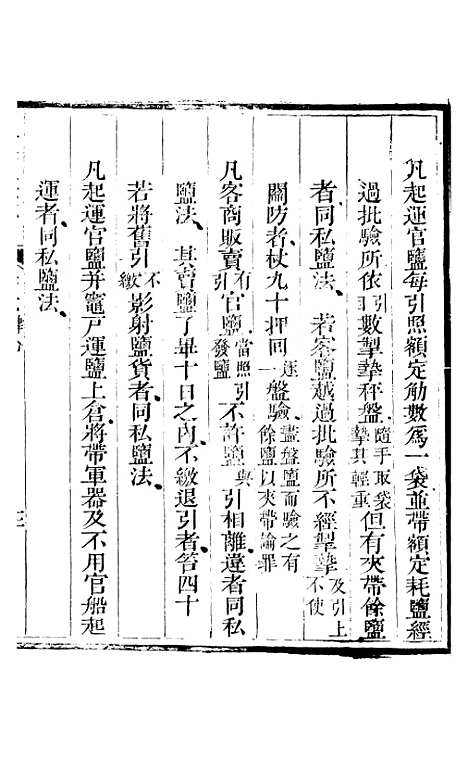 凡起運官鹽每引照額定觔數爲一袋並帶額定耗鹽經
過批驗所依引數掣摯秤盤隨手取袋摯其輕重但有夾帶餘鹽
者同私鹽法若客鹽越過批驗所不經掣摯及引上不使
關防者杖九十押回逐一盤驗盡盤鹽而驗之有餘鹽以夾帶論罪
凡客商販賣有引官鹽當照引發鹽不許鹽與引相離違者同私
鹽法其賣鹽了畢十日之內不繳退引者笞四十
若將舊引不繳影射鹽貨者同私鹽法
凡起運官鹽并竈戸運鹽上倉將帶軍器及不用官船起
運者同私鹽法
三